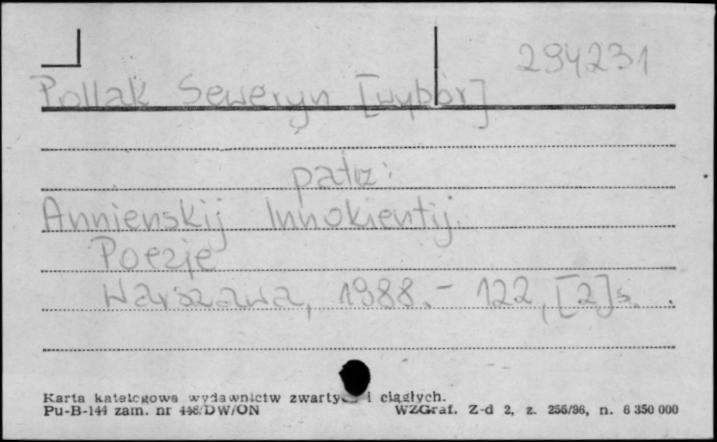 294231
Pollak Seweryn [wybór]
patrz:
Annienskij Innokientij.
Poezje
Warszawa, 1988. - 122, [2] s.
Karta katalogowa wydawnictw zwartych i ciągłych.
Pu-B-144 zam. nr 448/DW/ON WZGraf. Z-d 2, z. 256/86, n. 6 350 000